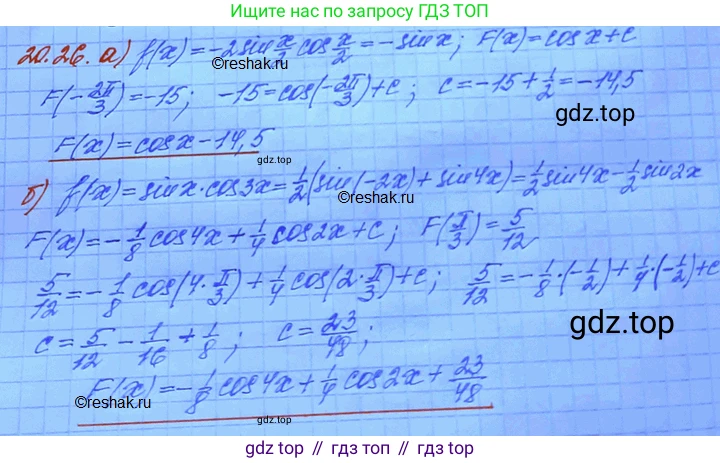 Ищите нас по запросу ГДЗ ТОП
20.26. а) f(x)=-2sin x/2 cos x/2=-sin x; F(x)=cos x+c
©reshak.ru
F(-2π/3)=-15; -15=cos(-2π/3)+c; c=-15+1/2=-14,5
gdz.top
F(x)=cosx-14,5
gdz.top
б) f(x)=sinx·cos3x=1/2(sin(-2x)+sin4x)=1/2sin4x-1/2sin2x
©reshak.ru
F(x)=-1/8cos4x+1/4cos2x+c; F(π/3)=5/12
5/12=-1/8cos(4·π/3)+1/4cos(2·π/3)+c; 5/12=-1/8·(-1/2)+1/4·(-1/2)+c
c=5/12-1/16+1/8; c=23/48;
gdz.top
F(x)=-1/8cos4x+1/4cos2x+23/48
©reshak.ru
gdz.top
gdz top // гдз топ // gdz.top